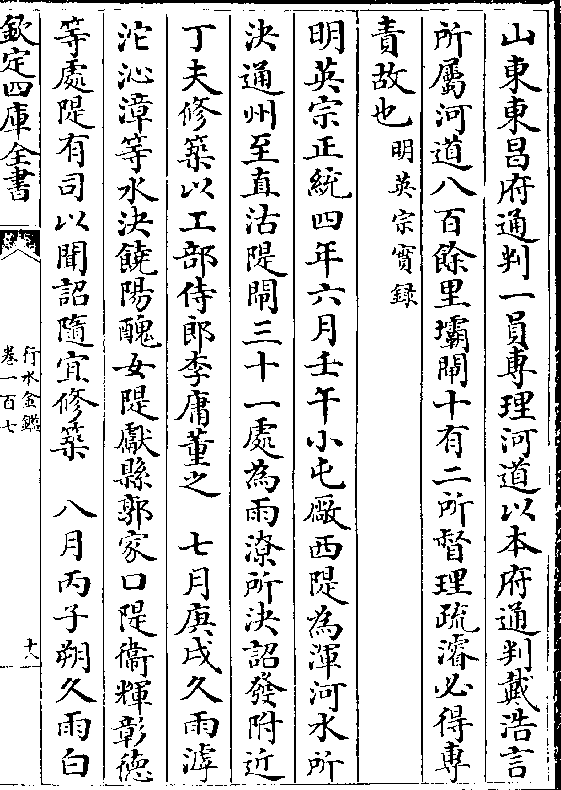 山東東昌府通判一員専理河道以本府通判戴浩言
所屬河道八百餘里壩閘十有二所督理疏濬必得専
責故也明英宗實録
明英宗正統四年六月壬午小屯厰西隄為渾河水所
決通州至直沽隄閘三十一處為雨潦所決詔發附近
丁夫修築以工部侍郎李庸董之　七月庚戌久雨滹
沱沁漳等水決饒陽醜女隄獻縣郭家口隄衞輝彰德
等處隄有司以聞詔隨宜修築　八月丙子朔久雨白
欽定四庫全書
行水金鑑
卷一百七
十八